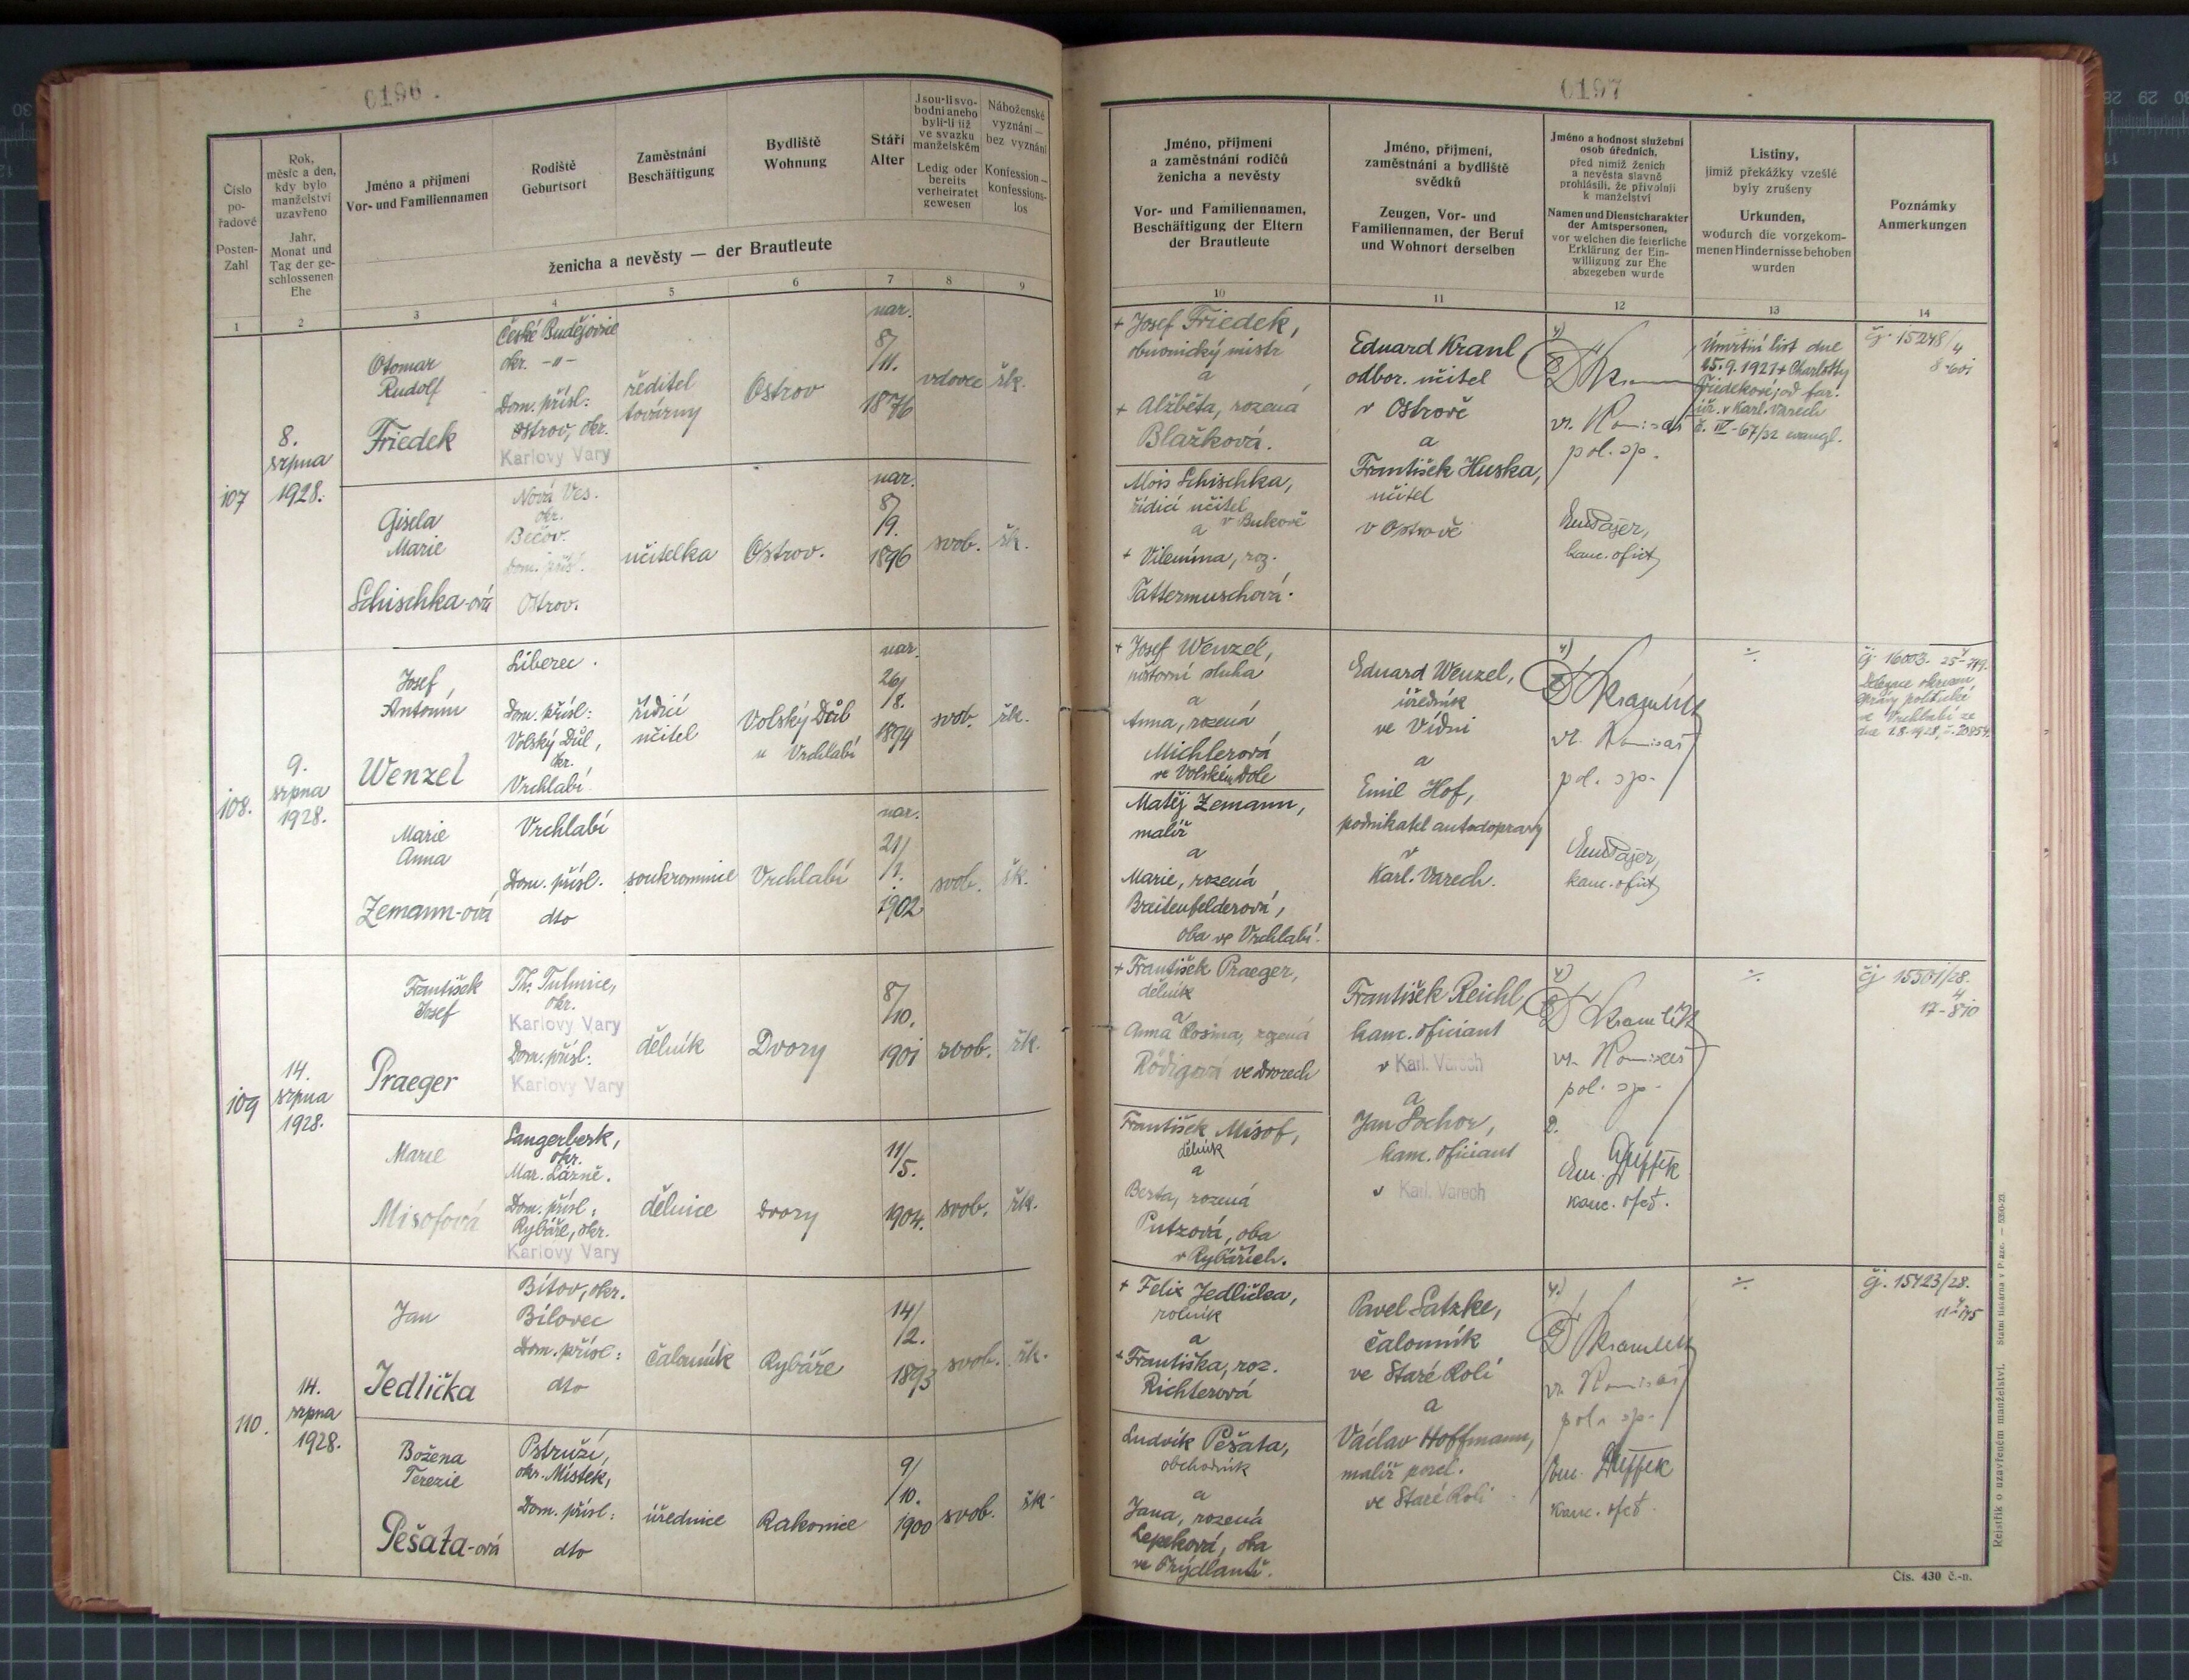 0196.
Číslo pořadové
Posten-Zahl
Rok, měsíc a den, kdy bylo manželství uzavřeno
Jahr, Monat und Tag der geschlossenen Ehe
Jméno a příjmení
Vor- und Familiennamen
Rodiště
Geburtsort
Zaměstnání
Beschäftigung
Bydliště
Wohnung
Stáří
Alter
Jsou-li svobodni anebo byli-li již ve svazku manželském
Ledig oder bereits verheiratet gewesen
Náboženské vyznání — bez vyznání
Konfession — konfessionslos
ženicha a nevěsty — der Brautleute
1 2 3 4 5 6 7 8 9
107
8.
srpna
1928.
Otomar
Rudolf
Friedek
České Budějovice
okr. -„-
Dom. přísl:
Ostrov, okr.
Karlovy Vary
ředitel
továrny
Ostrov
nar.
8/
/11.
1876
vdovec
řk.
Gisela
Marie
Schischka-ová
Nová Ves.
okr.
Bečov.
Dom. přísl.
Ostrov.
učitelka
Ostrov.
nar.
8/
/9.
1896
svob.
řk.
108.
9.
srpna
1928.
Josef
Antonín
Wenzel
Liberec.
Dom. přísl:
Volský Důl,
okr.
Vrchlabí
řídící
učitel
Volský Důl
u Vrchlabí
nar.
26/
/8.
1894
svob.
řk.
Marie
Anna
Zemann-ová
Vrchlabí
Dom. přísl.
dto
soukromnice
Vrchlabí
nar.
21/
/1.
1902
svob.
řk.
109
14.
srpna
1928.
František
Josef
Praeger
Th. Tuhnice,
okr.
Karlovy Vary
Dom. přísl:
Karlovy Vary
dělník
Dvory
8/
/10.
1901
svob.
řk.
Marie
Misofová
Sangerberk,
okr.
Mar. Lázně.
Dom. přísl:
Rybáře, okr.
Karlovy Vary
dělnice
Dvory
11/
/5.
1904.
svob.
řk.
110.
14.
srpna
1928.
Jan
Jedlička
Bítov, okr.
Bílovec
Dom. přísl:
dto
čalouník
Rybáře
14/
/2.
1893
svob.
řk.
Božena
Terezie
Pešata-ová
Pstruží,
okr. Místek,
Dom. přísl:
dto
úřednice
Rakonice
9/
/10.
1900
svob.
řk.
0197
Jméno, příjmení
a zaměstnání rodičů
ženicha a nevěsty
Vor- und Familiennamen,
Beschäftigung der Eltern
der Brautleute
Jméno, příjmení,
zaměstnání a bydliště
svědků
Zeugen, Vor- und
Familiennamen, der Beruf
und Wohnort derselben
Jméno a hodnost služební
osob úředních,
před nimiž ženich
a nevěsta slavně
prohlásili, že přivolují
k manželství
Namen und Dienstcharakter
der Amtspersonen,
vor welchen die feierliche
Erklärung der Ein-
willigung zur Ehe
abgegeben wurde
Listiny,
jimiž překážky vzešlé
byly zrušeny
Urkunden,
wodurch die vorgekom-
menen Hindernisse behoben
wurden
Poznámky
Anmerkungen
10 11 12 13 14
+ Josef Friedek,
obuvnický mistr
a
+ Alžběta, rozená
Blažková.
Alois Schischka,
řídící učitel
a v Bukové
+ Vilemína, roz.
Tattermuschová.
Eduard Kranl
odbor. učitel
v Ostrově
a
František Huska,
učitel
v Ostrově
vr. Komisař
pol. sp.
kanc. ofict
Úmrtní list dne
25.9.1927 + Charlotty
Friedekové, od far.
úř. v Karl. Varech
č. IV-67/32 evangl.
čj. 15248/4
+ Josef Wenzel,
a
Anna, rozená
Michlerová
ve Volském Dole
Matěj Zemann,
malíř
a
Marie, rozená
Breitenfelderová,
oba ve Vrchlabí.
Eduard Wenzel,
úředník
ve Vídni
a
Emil Hof,
podnikatel autodopravy
v
Karl. Varech.
vr. Komisař
pol. sp.
kanc. ofict
÷
čj. 16003.
Delegace okresní
správy politické
ve Vrchlabí ze
dne 1.8.1928, č. 20854.
+ František Praeger,
dělník
a
Anna Rosina, rozená
Rödigová ve Dvorech
František Misof,
dělník
a
Berta, rozená
Putzová, oba
v Rybářích.
František Reichl,
kanc. oficiant
v Karl. Varech
a
Jan Sochor,
kanc. oficiant
v Karl. Varech
vr. Komisař
pol. sp.
kanc. ofct.
÷
čj 15501/28.
+ Felix Jedlička,
rolník
a
+ Františka, roz.
Richterová
Ludvík Pešata,
obchodník
a
Jana, rozená
Lepeková, oba
ve Frýdlantě.
Pavel Satzke,
čalouník
ve Staré Roli
a
Václav Hoffmann,
malíř porcel.
ve Staré Roli
vr. Komisař
pol. sp.
kanc. ofct.
÷
čj. 15423/28.
Rejstřík o uzavřeném manželství. Státní tiskárna v Praze. — 5360-23.
Čís. 430 č.-n.